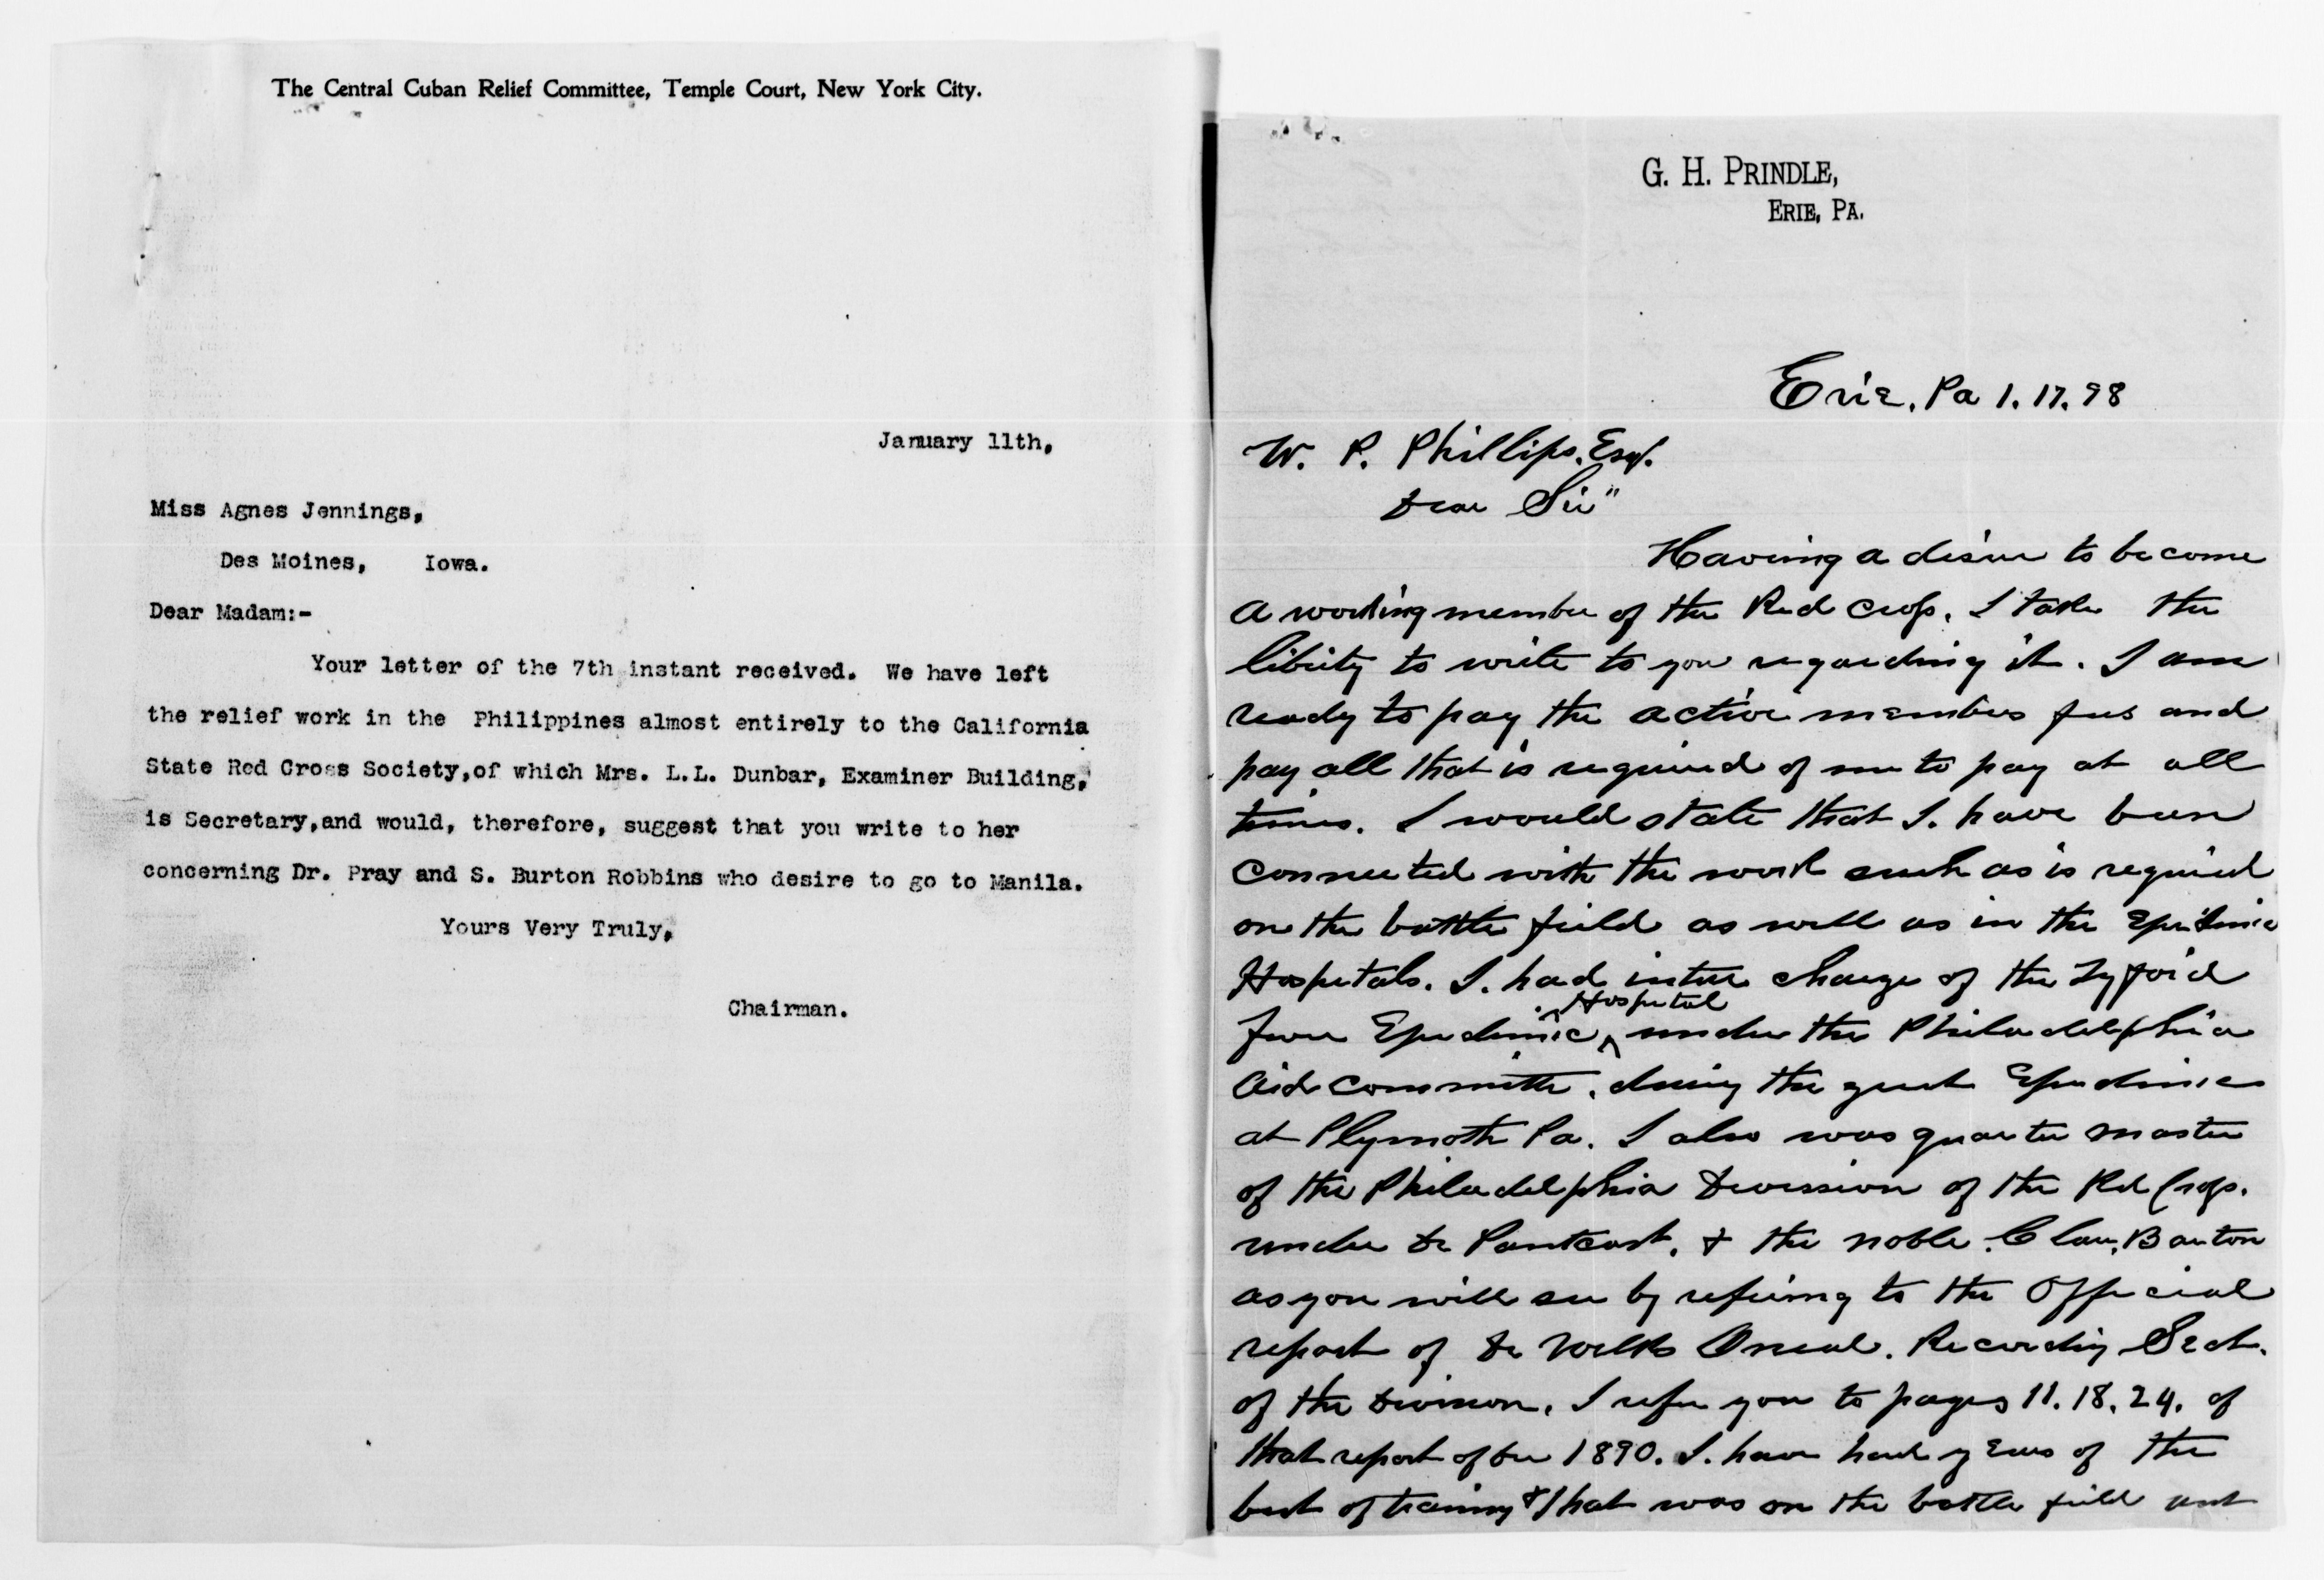 The Central Cuban Relief Committee, Temple Court, New York City.
January 11th,
Miss Agnes Jennings,
Des Moines, Iowa.
Dear Madam:-
Your letter of the 7th instant received. We have left
the relief work in the Philippines almost entirely to the California
State Red Cross Society,of which Mrs. L.L. Dunbar, Examiner Building,
is Secretary,and would, therefore, suggest that you write to her
concerning Dr. Pray and S. Burton Robbins who desire to go to Manila.
Yours Very Truly,
Chairman.
G. H. PRINDLE,
ERIE, PA.
Erie, Pa 1. 17. 98
W. P. Phillips. Esq.
Dear Sir"
Having a desire to become
a working member of the Red Cross. I take the
liberty to write to you regarding it. I am
ready to pay the active members fees and
pay all that is required of me to pay at all
times. I would state that I. have been
connected with the work such as is required
on the battle field as well as in the Epidemic
Hospitals. I. had intire charge of the Tyfoid
fever Epidemic Hospital under the Philadelphia
Aid Committe. during the great Epidemic
at Plymoth Pa. I also was quarter master
of the Philadelphia Devission of the Rd Cross.
under Dr Pantcoast. & the noble Clara Barton
as you will see by refering to the Official
report of Dr Oneal. Recording Sect.
of the Division. I refer you to pages 11. 18. 24. of
that report of 1890. I. have had years of the
best of training & that was on the battle field and